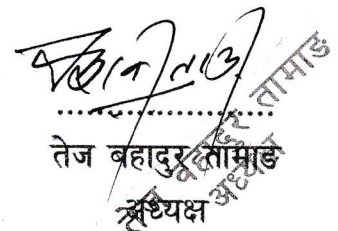 ..............................
तेज बहादुर तामाङ
अध्यक्ष
बहादुर तामाङ
अध्यक्ष